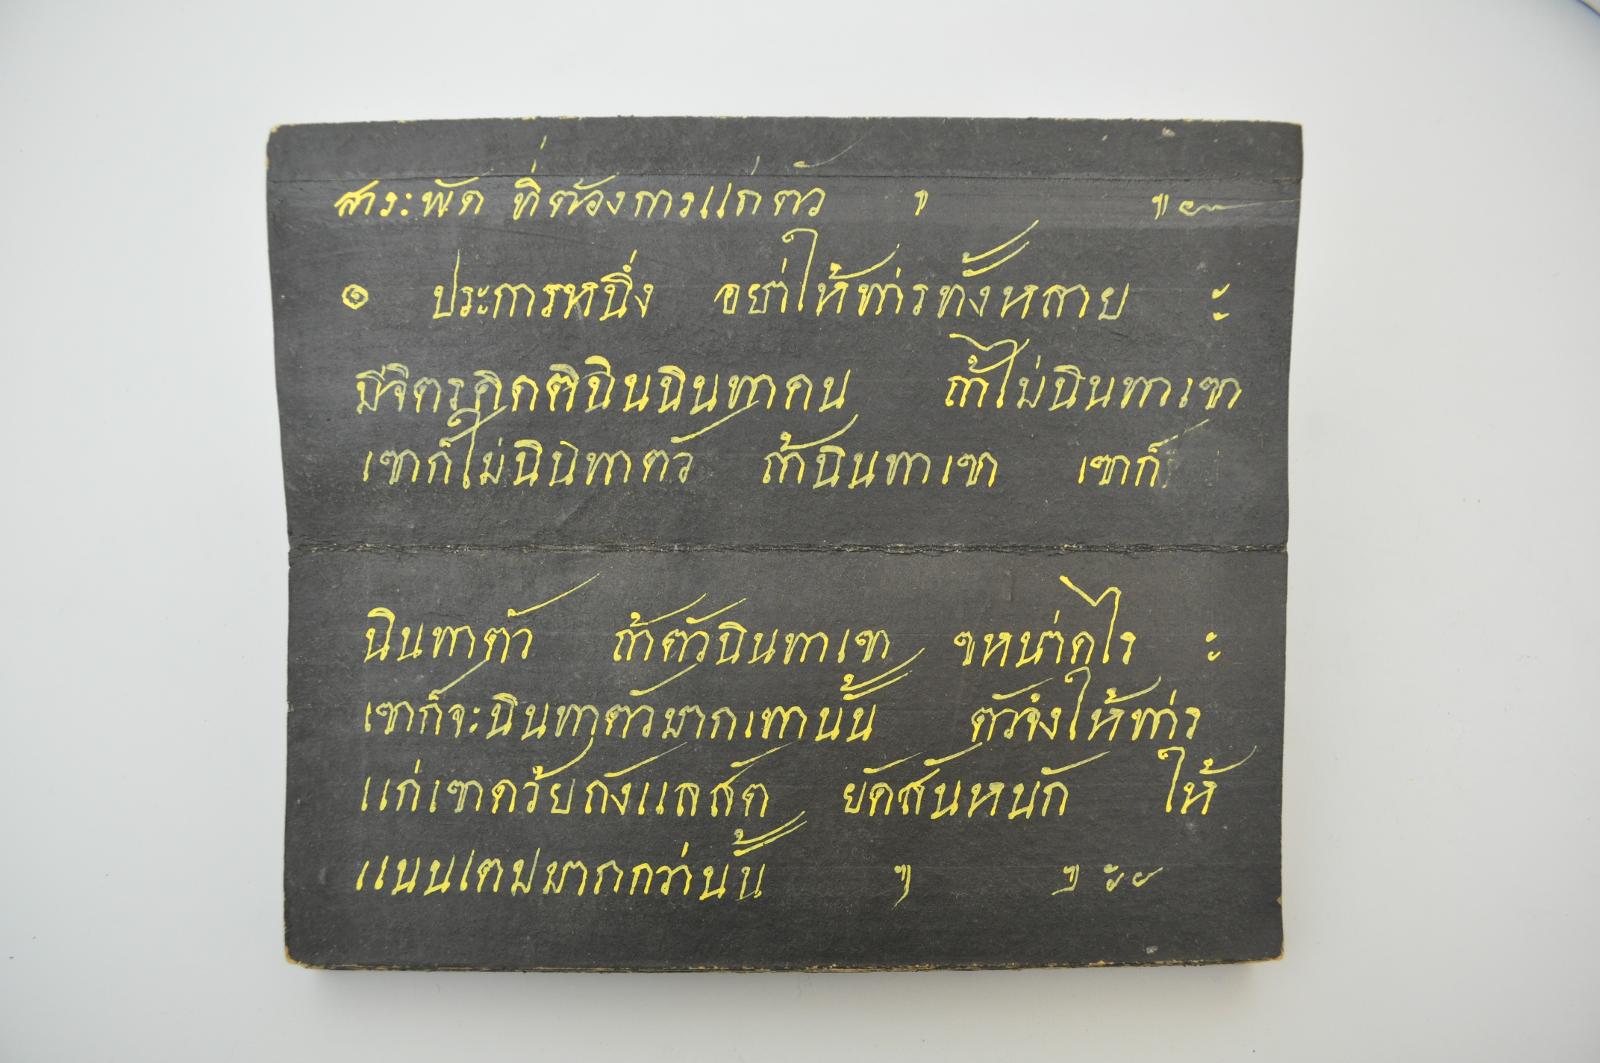 สาระพัด ที่ต้องการแก่ตัว ฯ
๏ ประการหนึ่ง อย่าให้ท่ารทั้งหลาย ะ
มีจิตรคิดติฉินฉินทาคน ถ้าไม่ฉินทาเขา
เขาก็ไม่ฉินทาตัว ถ้าฉินทาเขา เขาก็
ฉินทาตัว ถ้าตัวฉินทาเขา ะ
เขาก็จะฉินทาตัวมากเทานั้น ตัวจึงให้ท่าร
แก่เขาดว้ยถังแลสัด ยัดสันหนัก ให้
แนนเตมมากกว่านั้น ฯ